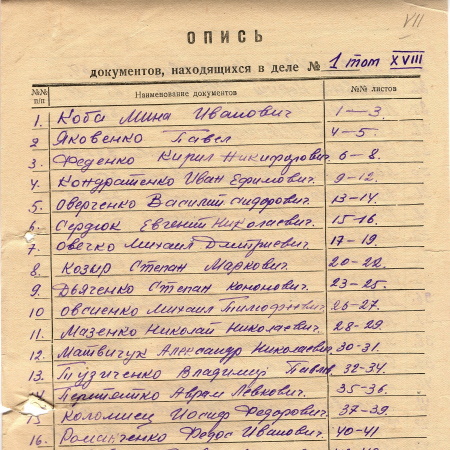 VII
ОПИСЬ
документов, находящихся в деле № 1 том XVIII
№№ п/п Наименование документов №№ листов
1. Коба Мина Иванович 1—3.
2 Яковенко Павел 4-5.
3. Феденко Кирил Никифорович 6-8.
4. Кондратенко Иван Ефимович. 9-12.
5. Оверченко Василий Сидорович 13-14.
6. Сердюк Евгений Николаевич. 15-16.
7. Овечко Михаил Дмитриевич 17-19.
8. Козир Степан Маркович. 20-22.
9. Дяченко Степан Кононович. 23-25.
10 Овсиенко Михаил Тимофеевич 26-27.
11. Мазенко Николай Николаевич. 28-29.
12. Матвичук Александр Николаевич 30-31.
13. Владимир Павлов. 32-34.
14 Аврам Левкович. 35-36.
15 Коломиец Иосиф Федорович. 37-39.
16. Романченко Федос Иванович. 40-41.